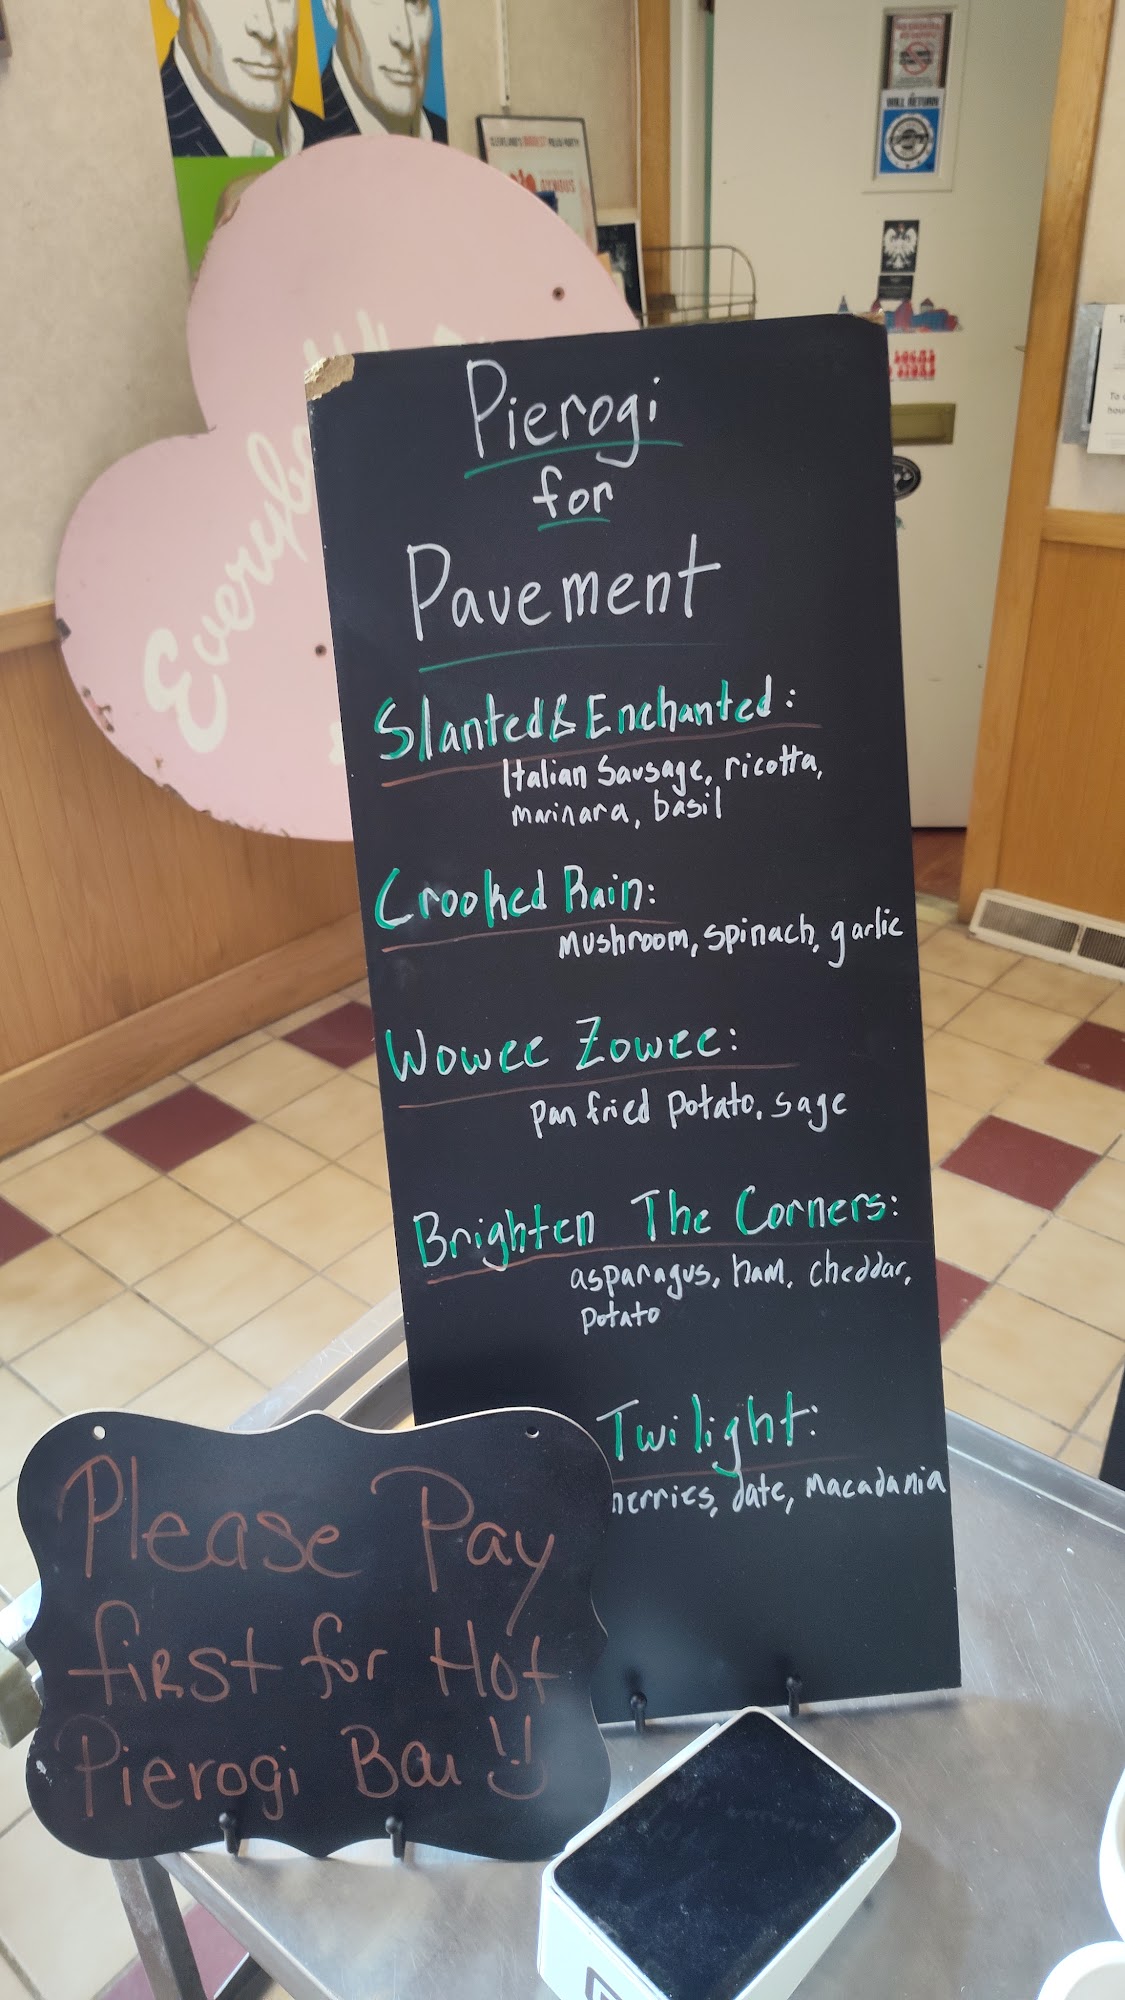 CLEVELAND'S BIGGEST POLISH PARTY!
DYNGUS
WILL RETURN
Pierogi
for
Pavement
Slanted & Enchanted:
Italian Sausage, ricotta,
marinara, basil
Crooked Rain:
Mushroom, spinach, garlic
Wowee Zowee:
pan fried potato, sage
Brighten The Corners:
asparagus, ham, cheddar,
potato
Twilight:
date, macadamia
Please Pay
first for Hot
Pierogi Bar